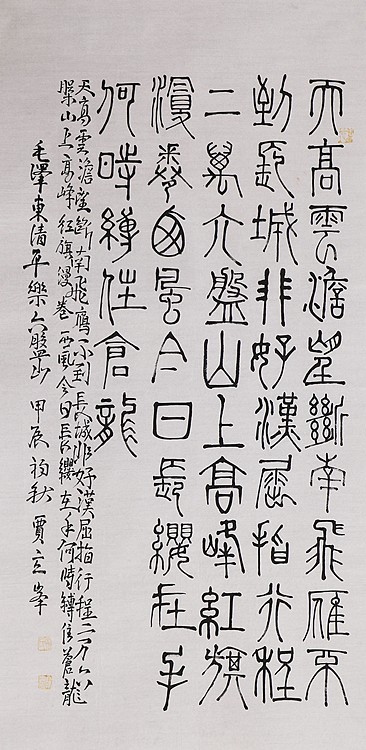 天高雲澹望斷南飛雁不
到長城非好漢屈指行程
二萬六盤山上高峰紅旗
漫卷西風今日長纓在手
何時縛住倉龍
天高雲澹望斷南飛雁不到長城非好漢屈指行程二万六
盤山上高峰紅旗漫卷西風今日長纓在手何時縛住蒼龍
毛澤東清平樂六盤山 甲辰初秋 賈立峯